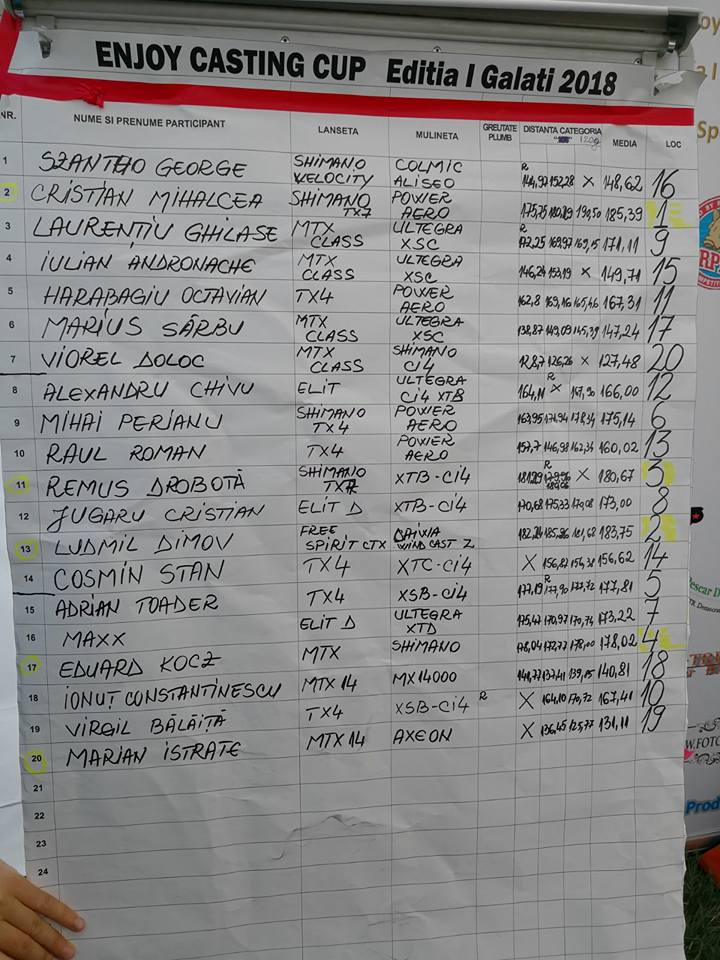 ENJOY CASTING CUP Editia I Galati 2018
NR. NUME SI PRENUME PARTICIPANT LANSETA MULINETA GREUTATE PLUMB DISTANTA CATEGORIA 120g MEDIA LOC
1 SZANTHO GEORGE SHIMANO VELOCITY COLMIC ALISEO R 144,97 152,28 X 148,62 16
2 CRISTIAN MIHALCEA SHIMANO TX7 POWER AERO 175,75 190,50 185,39 1
3 LAURENȚIU GHILASE MTX CLASS ULTEGRA XSC R 172,25 169,97 169,15 171,11 9
4 IULIAN ANDRONACHE MTX CLASS ULTEGRA XSC 146,24 153,19 X 149,71 15
5 HARABAGIU OCTAVIAN TX4 POWER AERO 162,8 169,16 165,46 167,31 11
6 MARIUS SÂRBU MTX CLASS ULTEGRA XSC 138,87 149,09 145,39 147,24 17
7 VIOREL DOLOC MTX CLASS SHIMANO Ci4 128,7 126,26 X 127,48 20
8 ALEXANDRU CHIVU ELIT ULTEGRA Ci4 XTB 164,11 R X 167,90 166,00 12
9 MIHAI PERIANU SHIMANO TX4 POWER AERO 163,95 171,94 178,34 175,14 6
10 RAUL ROMAN TX4 POWER AERO 157,7 146,98 162,34 160,02 13
11 REMUS DROBOTĂ SHIMANO TX7 XTB-Ci4 181,29 R X 180,67 3
12 JUGARU CRISTIAN ELIT D XTB-Ci4 170,68 175,33 170,08 173,00 8
13 LUDMIL DIMOV FREE SPIRIT CTX DAIWA WIND CAST Z 182,24 185,26 181,68 183,75 2
14 COSMIN STAN TX4 XTC-Ci4 X 156,82 156,62 14
15 ADRIAN TOADER TX4 XSB-Ci4 177,19 R 177,90 177,72 177,81 5
16 MAXX ELIT D ULTEGRA XTD 175,47 170,97 170,74 173,22 7
17 EDUARD KOCZ MTX SHIMANO 178,04 172,77 178,00 178,02 4
18 IONUȚ CONSTANTINESCU MTX 14 MX14000 141,77 137,41 139,85 140,81 18
19 VIRGIL BĂLĂIȚĂ TX4 XSB-Ci4 R X 164,10 170,72 167,41 10
20 MARIAN ISTRATE MTX 14 AXEON X 136,45 125,77 131,11 19
21
22
23
24
Prod